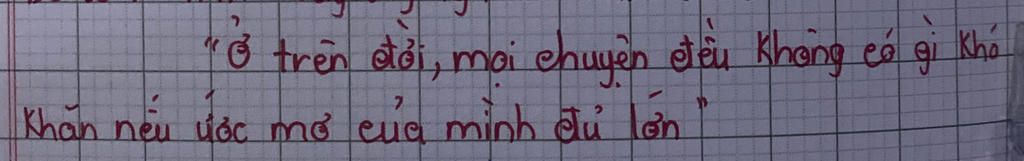 "Ở trên đời, mọi chuyện đều không có gì khó
khăn nếu ước mơ của mình đủ lớn"